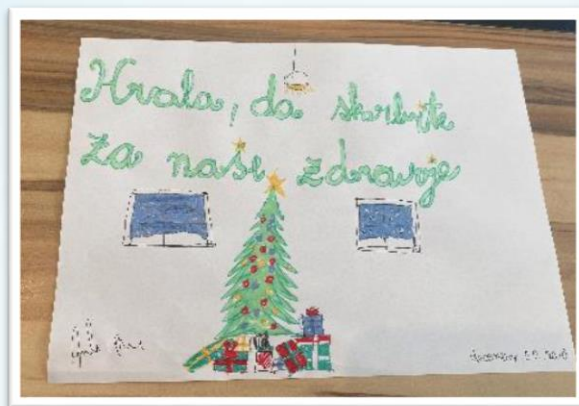 Hvala, da skrbite
za naše zdravje